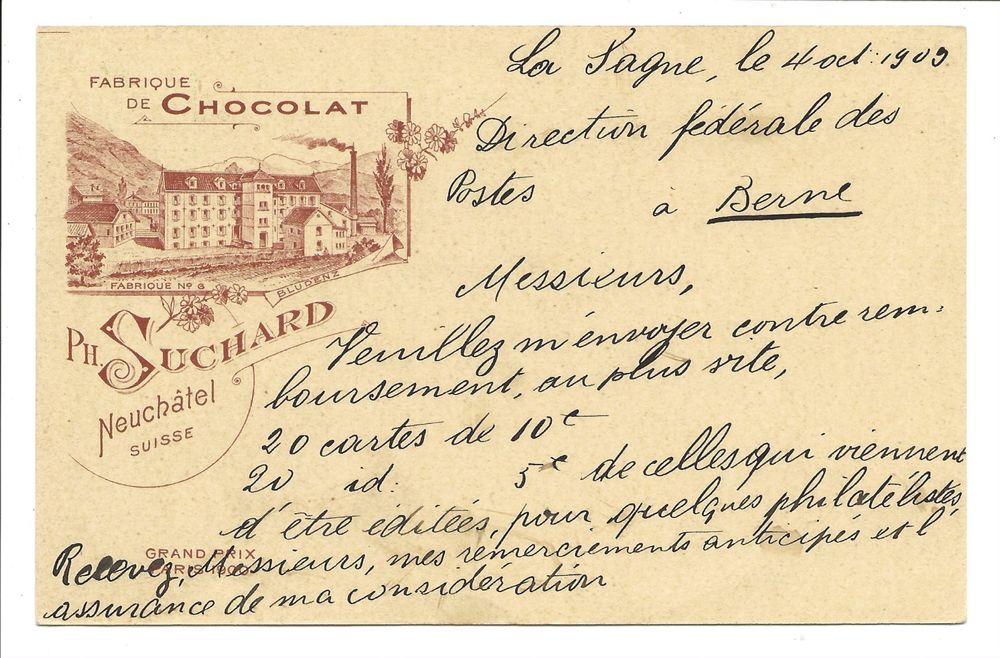 La Sagne, le 4 oct. 1909
FABRIQUE
DE CHOCOLAT
Direction fédérale des
Postes à Berne
FABRIQUE No 6
BLUDENZ
PH. SUCHARD
Neuchâtel
SUISSE
Messieurs,
Veuillez m'envoyer contre rem-
boursement, au plus vite,
20 cartes de 10c
20 id. 5c de celles qui viennent
d'être éditées, pour quelques philatélistes
GRAND PRIX
PARIS 1900
Recevez, Messieurs, mes remerciements anticipés et l'
assurance de ma considération